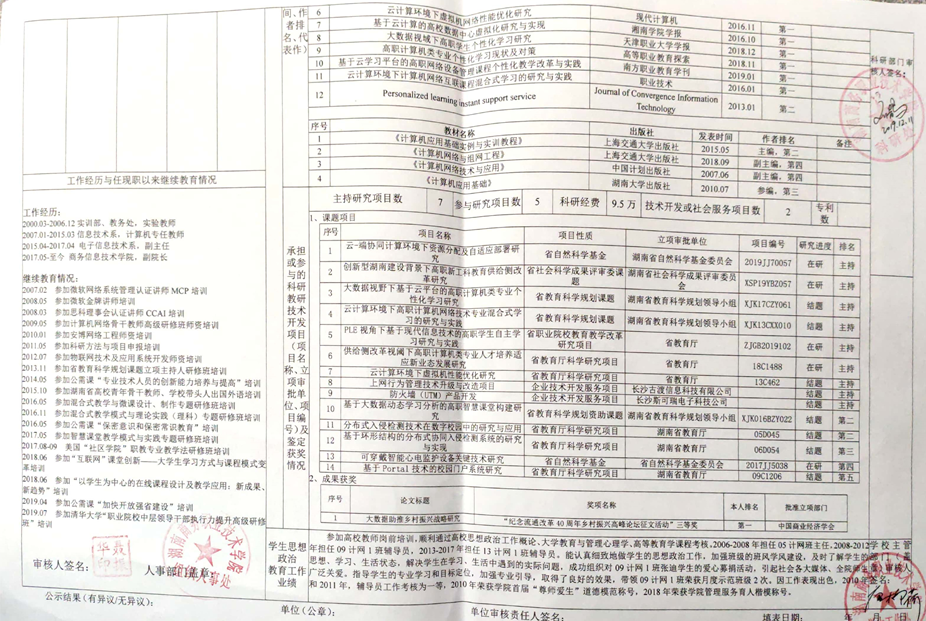 工作经历与任现职以来继续教育情况
工作经历:
2000.03-2006.12 实训部、教务处，实验教师
2007.01-2015.03 信息技术系，计算机专任教师
2015.04-2017.04 电子信息技术系，副主任
2017.05-至今 商务信息技术学院，副院长
继续教育情况:
2007.02 参加微软网络系统管理认证讲师 MCP 培训
2008.05 参加微软金牌讲师培训
2008.03 参加思科理事会认证讲师 CCAI 培训
2009.05 参加计算机网络骨干教师高级研修班师资培训
2010.01 参加安博网络工程师资培训
2011.05 参加科研方法与项目申报培训
2012.07 参加物联网技术及应用系统开发师资培训
2013.11 参加省教育科学规划课题立项主持人研修班培训
2014.05 参加公需课“专业技术人员的创新能力培养与提高”培训
2015.10 参加湖南省高校青年骨干教师、学校带头人出国外语培训
2016.05 参加混合式教学与微课设计、制作专题研修班培训
2016.11 参加混合式教学模式与理论实践（理科）专题研修班培训
2016.05 参加公需课“保密意识和保密常识教育”培训
2017.05 参加智慧课堂教学模式与实践专题研修班培训
2017.08-09 美国“社区学院”职教专业教学法研修班培训
2018.06 参加“互联网”课堂创新——大学生学习方式与课程模式变
革培训
2018.06 参加“以学生为中心的在线课程设计及教学应用：新成果、
新趋势”培训
2019.04 参加公需课“加快开放强省建设”培训
2019.07 参加清华大学“职业院校中层领导干部执行力提升高级研修
班”培训
审核人签名:
人事部门盖章:
公示结果(有异议/无异议):
间、作者排名、代表作）
6 云计算环境下虚拟机网络性能优化研究 现代计算机 2016.11 第一
7 基于云计算的高校数据中心虚拟化研究与实现 湘南学院学报 2016.10 第一
8 大数据视域下高职学生个性化学习研究 天津职业大学学报 2018.12 第一
9 高职计算机类专业个性化学习现状及对策 高等职业教育探索 2018.11 第一
10 基于云学习平台的高职网络设备管理课程个性化教学改革与实践 南方职业教育学刊 2019.01 第一
11 云计算环境下计算机网络互联课程混合式学习的研究与实践 职业技术 2016.01 第一
12 Personalized learning instant support service Journal of Convergence Information Technology 2013.01 第二
科研部门审核人签名:
2019.12.11
序号 教材名称 出版社 发表时间 作者排名 备注
1 《计算机应用基础实例与实训教程》 上海交通大学出版社 2015.05 主编，第二
2 《计算机网络与组网工程》 上海交通大学出版社 2018.09 副主编，第四
3 《计算机网络技术与应用》 中国计划出版社 2007.06 副主编，第四
4 《计算机应用基础》 湖南大学出版社 2010.07 参编，第三
主持研究项目数 7 参与研究项目数 5 科研经费 9.5 万 技术开发或社会服务项目数 2 专利数
承担或参与的科研教研技术开发项目（项目名称、立项审批单位、项目编号）及鉴定获奖情况
1、课题项目
序号 项目名称 项目性质 立项审批单位 项目编号 研究进度 排名
1 云-端协同计算环境下资源分配及自适应部署研究 省自然科学基金 湖南省自然科学基金委员会 2019JJ70057 在研 主持
2 创新型湖南建设背景下高职新工科教育供给侧改革研究 省社会科学成果评审委课题 湖南省社会科学成果评审委员会 XSP19YBZ057 在研 主持
3 大数据视野下基于云平台的高职计算机类类专业个性化学习研究 省教育科学规划课题 湖南省教育科学规划领导小组 XJK17CZY061 结题 主持
4 云计算环境下高职计算机网络技术专业混合式学习的研究与实践 省教育科学规划课题 湖南省教育科学规划领导小组 XJK13CXX010 结题 主持
5 PLE 视角下基于现代信息技术的高职学生自主学习研究与实践 省职业院校教育教学改革研究项目 省教育厅 ZJGB2019102 在研 主持
6 供给侧改革视阈下高职计算机类专业人才培养适应新业态发展研究 省教育厅科学研究项目 省教育厅 18C1488 在研 主持
7 云计算环境下虚拟机性能优化研究 省教育厅科学研究项目 省教育厅 13C462 结题 主持
8 上网行为管理技术升级与改造项目 企业技术开发服务项目 长沙古渡信息科技有限公司 结题 主持
9 防火墙（UTM）产品开发 企业技术开发服务项目 长沙斯可瑞电子科技公司 结题 主持
10 基于大数据动态学习分析的高职智慧课堂构建研究 省教育科学规划资助课题 湖南省教育科学规划领导小组 XJK016BZY022 结题 第二
11 分布式入侵检测技术在数字校园中的研究与应用 省教育厅科学研究项目 湖南省教育厅 05D045 结题 第二
12 基于环形结构的分布式协同入侵检测系统的研究与实现 省教育厅科学研究项目 湖南省教育厅 06D054 结题 第三
13 可穿戴智能心电监护设备关键技术研究 省自然科学基金 省自然科学基金委员会 2017JJ5038 在研 第四
14 基于 Portal 技术的校园门户系统研究 省教育厅科学研究项目 湖南省教育厅 09C1206 结题 第五
2、成果获奖
序号 论文标题 奖项名称 本人排名 批准立项部门
1 大数据助推乡村振兴战略研究 “纪念流通改革 40 周年乡村振兴高峰论坛征文活动”三等奖 第一 中国商业经济学会
学生思想政治教育工作业绩
参加高校教师岗前培训，顺利通过高校思想政治工作概论、大学教育与管理心理学、高等教育学课程考核，2006-2008 年担任 05计网班主任、2008-2012
担任 09 计网 1 班辅导员，2013-2017 年担任 13 计网 1 班辅导员，能认真细致地做学生的思想政治工作，加强班级的班风学风建设，及时了解学生的
思想、学习、生活状态，解决学生在学习、生活中遇到的实际问题，成功组织对 09 计网 1 班张迪学生的爱心募捐活动，引起社会各大媒体、全院师生
广泛关爱。指导学生的专业学习和目标定位，加强专业引导，取得了良好的效果，带领 09 计网 1 班荣获月度示范班级 2 次，因工作表现出色，2010 年
和 2011 年，辅导员工作考核为一等，2010 年荣获学院首届“尊师爱生”道德模范称号，2018 年荣获学院管理服务育人楷模称号。
学校主管
审核人
签名:
单位（公章）:
单位审核责任人签名:
填表日期: 年 月 日